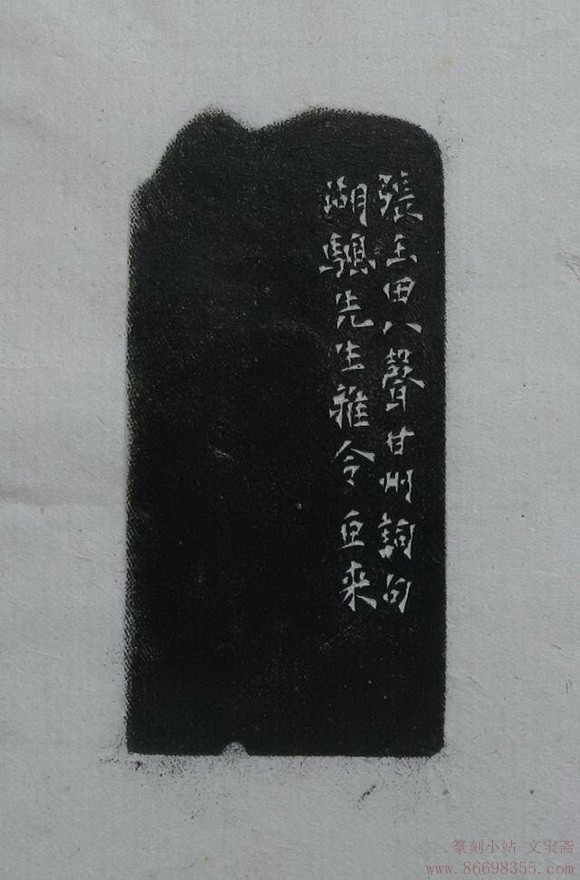 張玉田八聲甘州詞句
湖颿先生雅令 巨来
篆刻小站 文宝斋
www.86698355.com